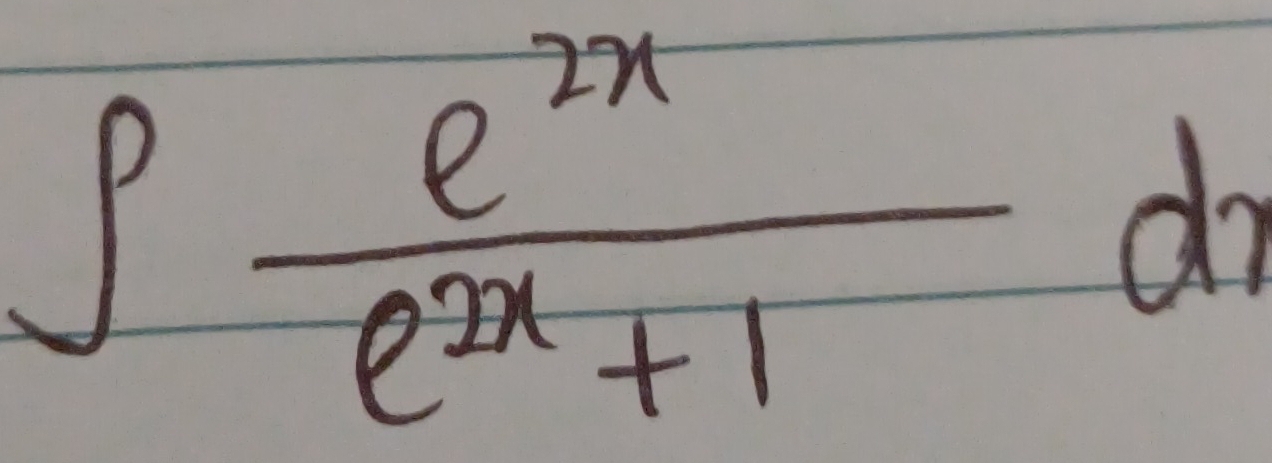 ∫ e^{2x} / (e^{2x} + 1) dx